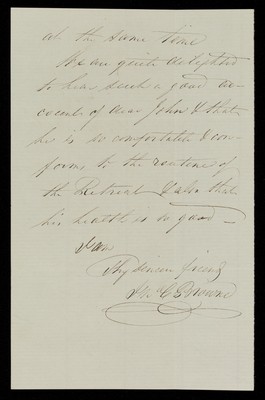 at the same time
We are quite delighted
to hear such a good ac-
count of dear John & that
he is so comfortable & con-
forms to the routine of
the Retreat & also that
his health is so good —
I am
Thy sincere friend
C Browne